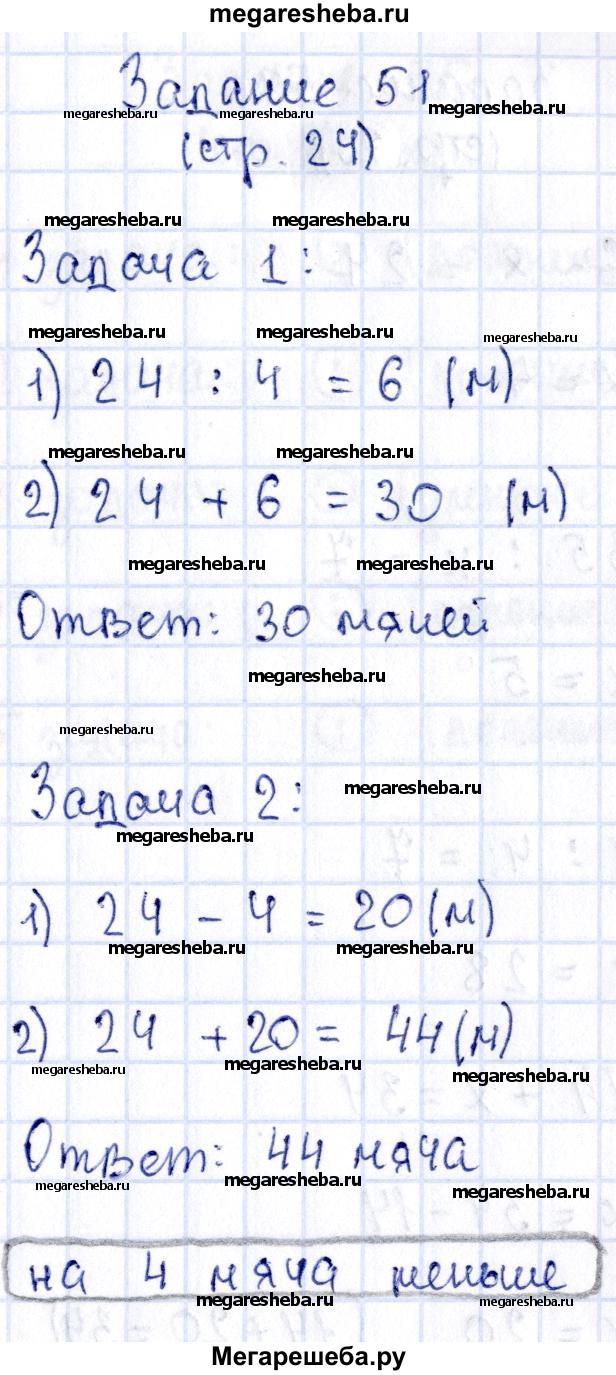 megaresheba.ru
Задание 51
megaresheba.ru megaresheba.ru megaresheba.ru
(стр. 24)
megaresheba.ru megaresheba.ru
Задача 1:
megaresheba.ru megaresheba.ru megaresheba.ru
1) 24 : 4 = 6 (м)
megaresheba.ru megaresheba.ru
2) 24 + 6 = 30 (м)
megaresheba.ru megaresheba.ru
Ответ: 30 мячей
megaresheba.ru
megaresheba.ru
Задача 2:
megaresheba.ru
megaresheba.ru
1) 24 - 4 = 20 (м)
megaresheba.ru megaresheba.ru
2) 24 + 20 = 44 (м)
megaresheba.ru megaresheba.ru megaresheba.ru
Ответ: 44 мяча
megaresheba.ru megaresheba.ru megaresheba.ru
на 4 мяча меньше
megaresheba.ru megaresheba.ru
Мегарешеба.ру